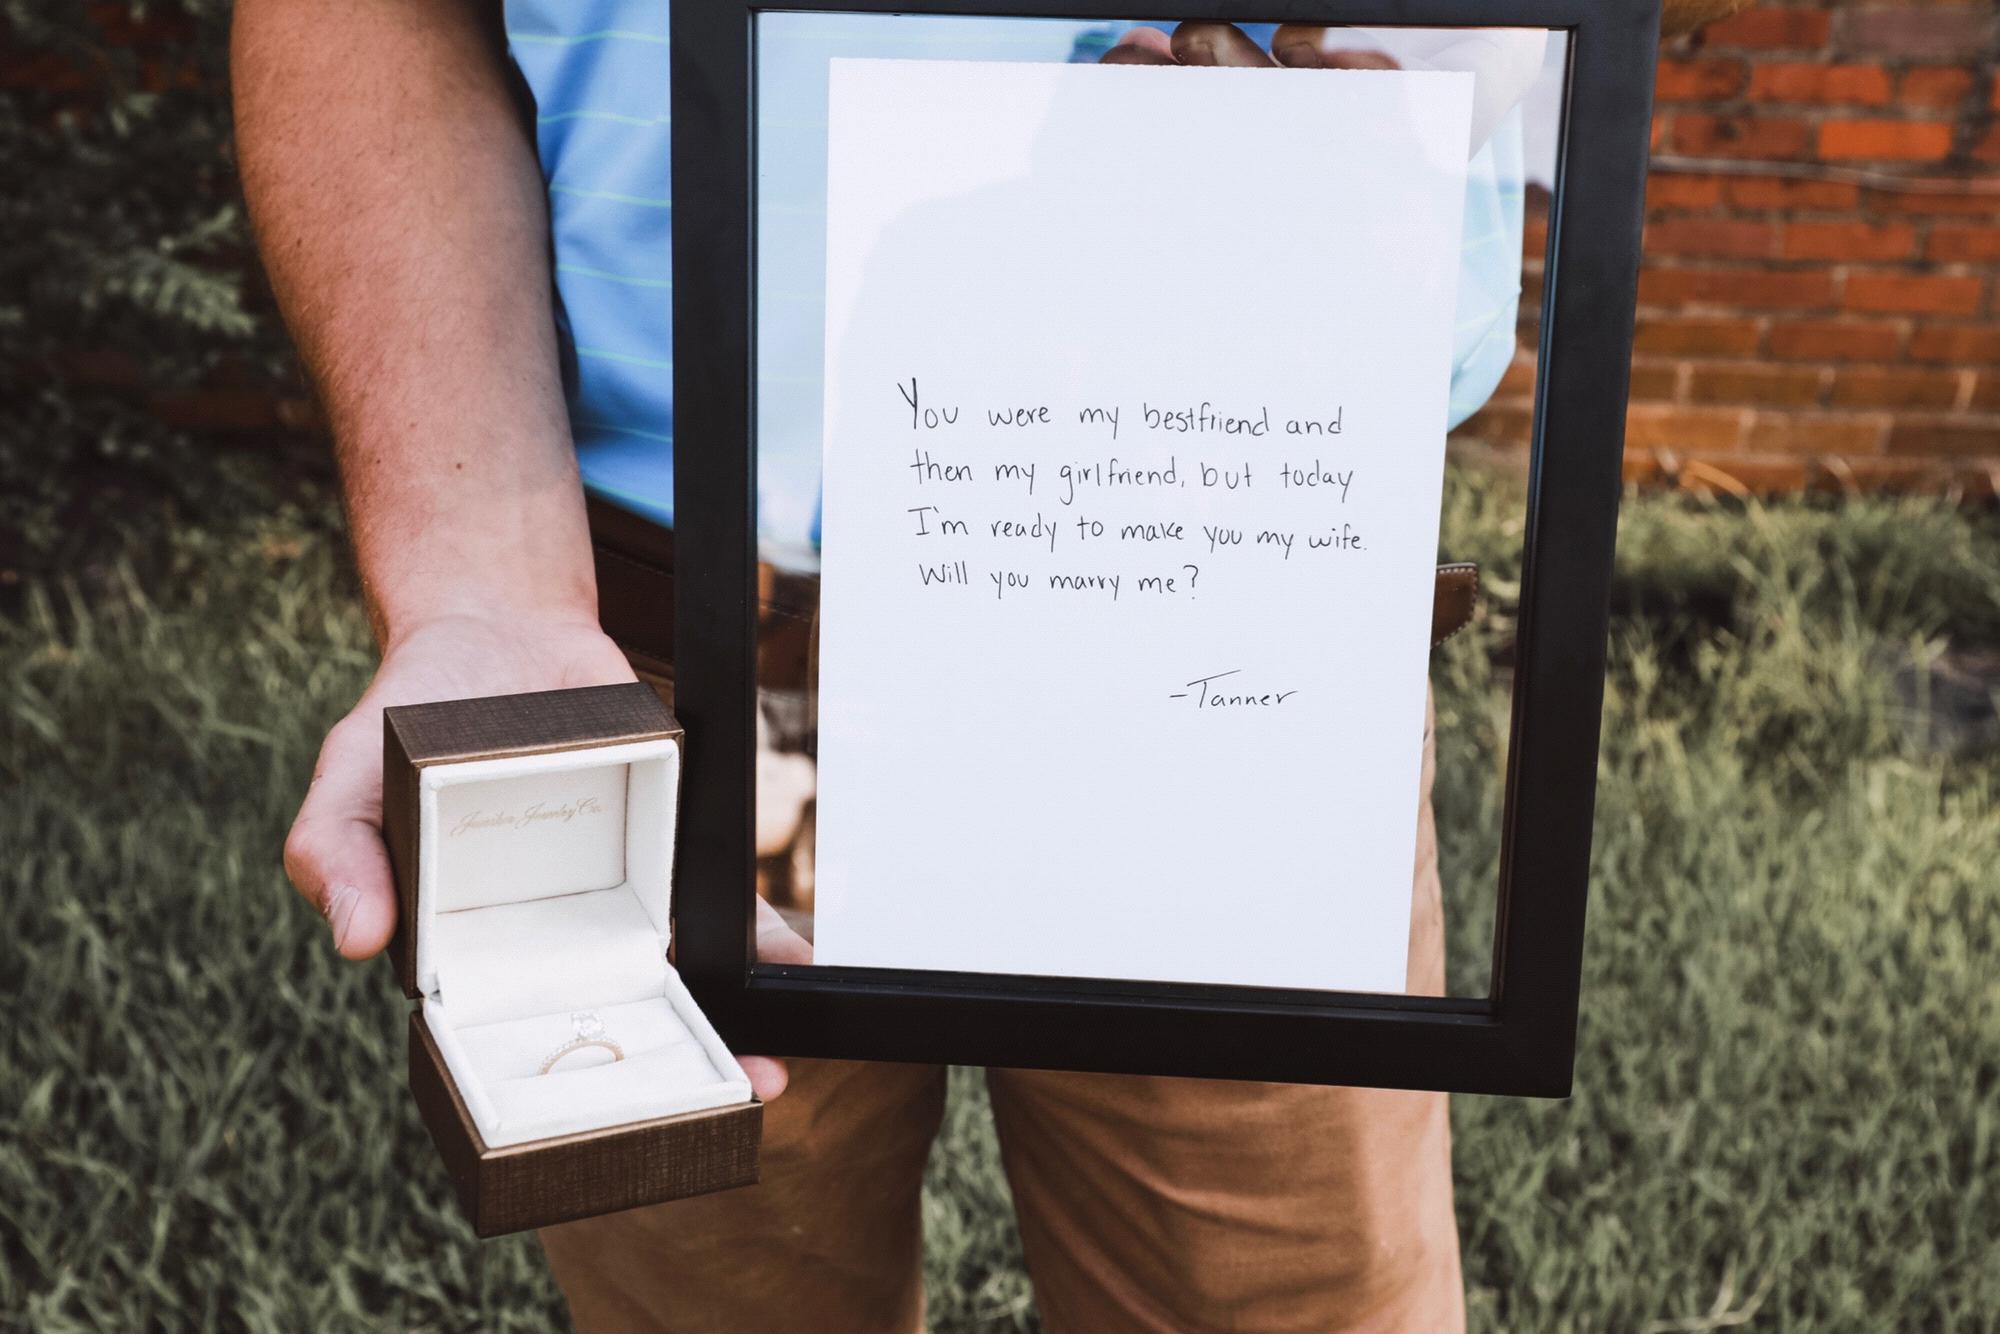 You were my bestfriend and
then my girlfriend, but today
I'm ready to make you my wife.
Will you marry me?
-Tanner
Jewelry Co.